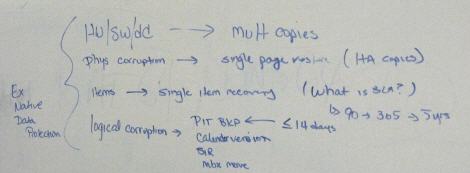 HW/SW/dc → Mult copies
Phys corruption → single page restore (HA copies)
Items → single item recovery (What is SLA?)
↳ 90 → 365 → 5yrs
logical corruption → PIT BKP ← ≤14 days
Calendar version
SIR
Mbx move
Ex
Native
Data
Protection